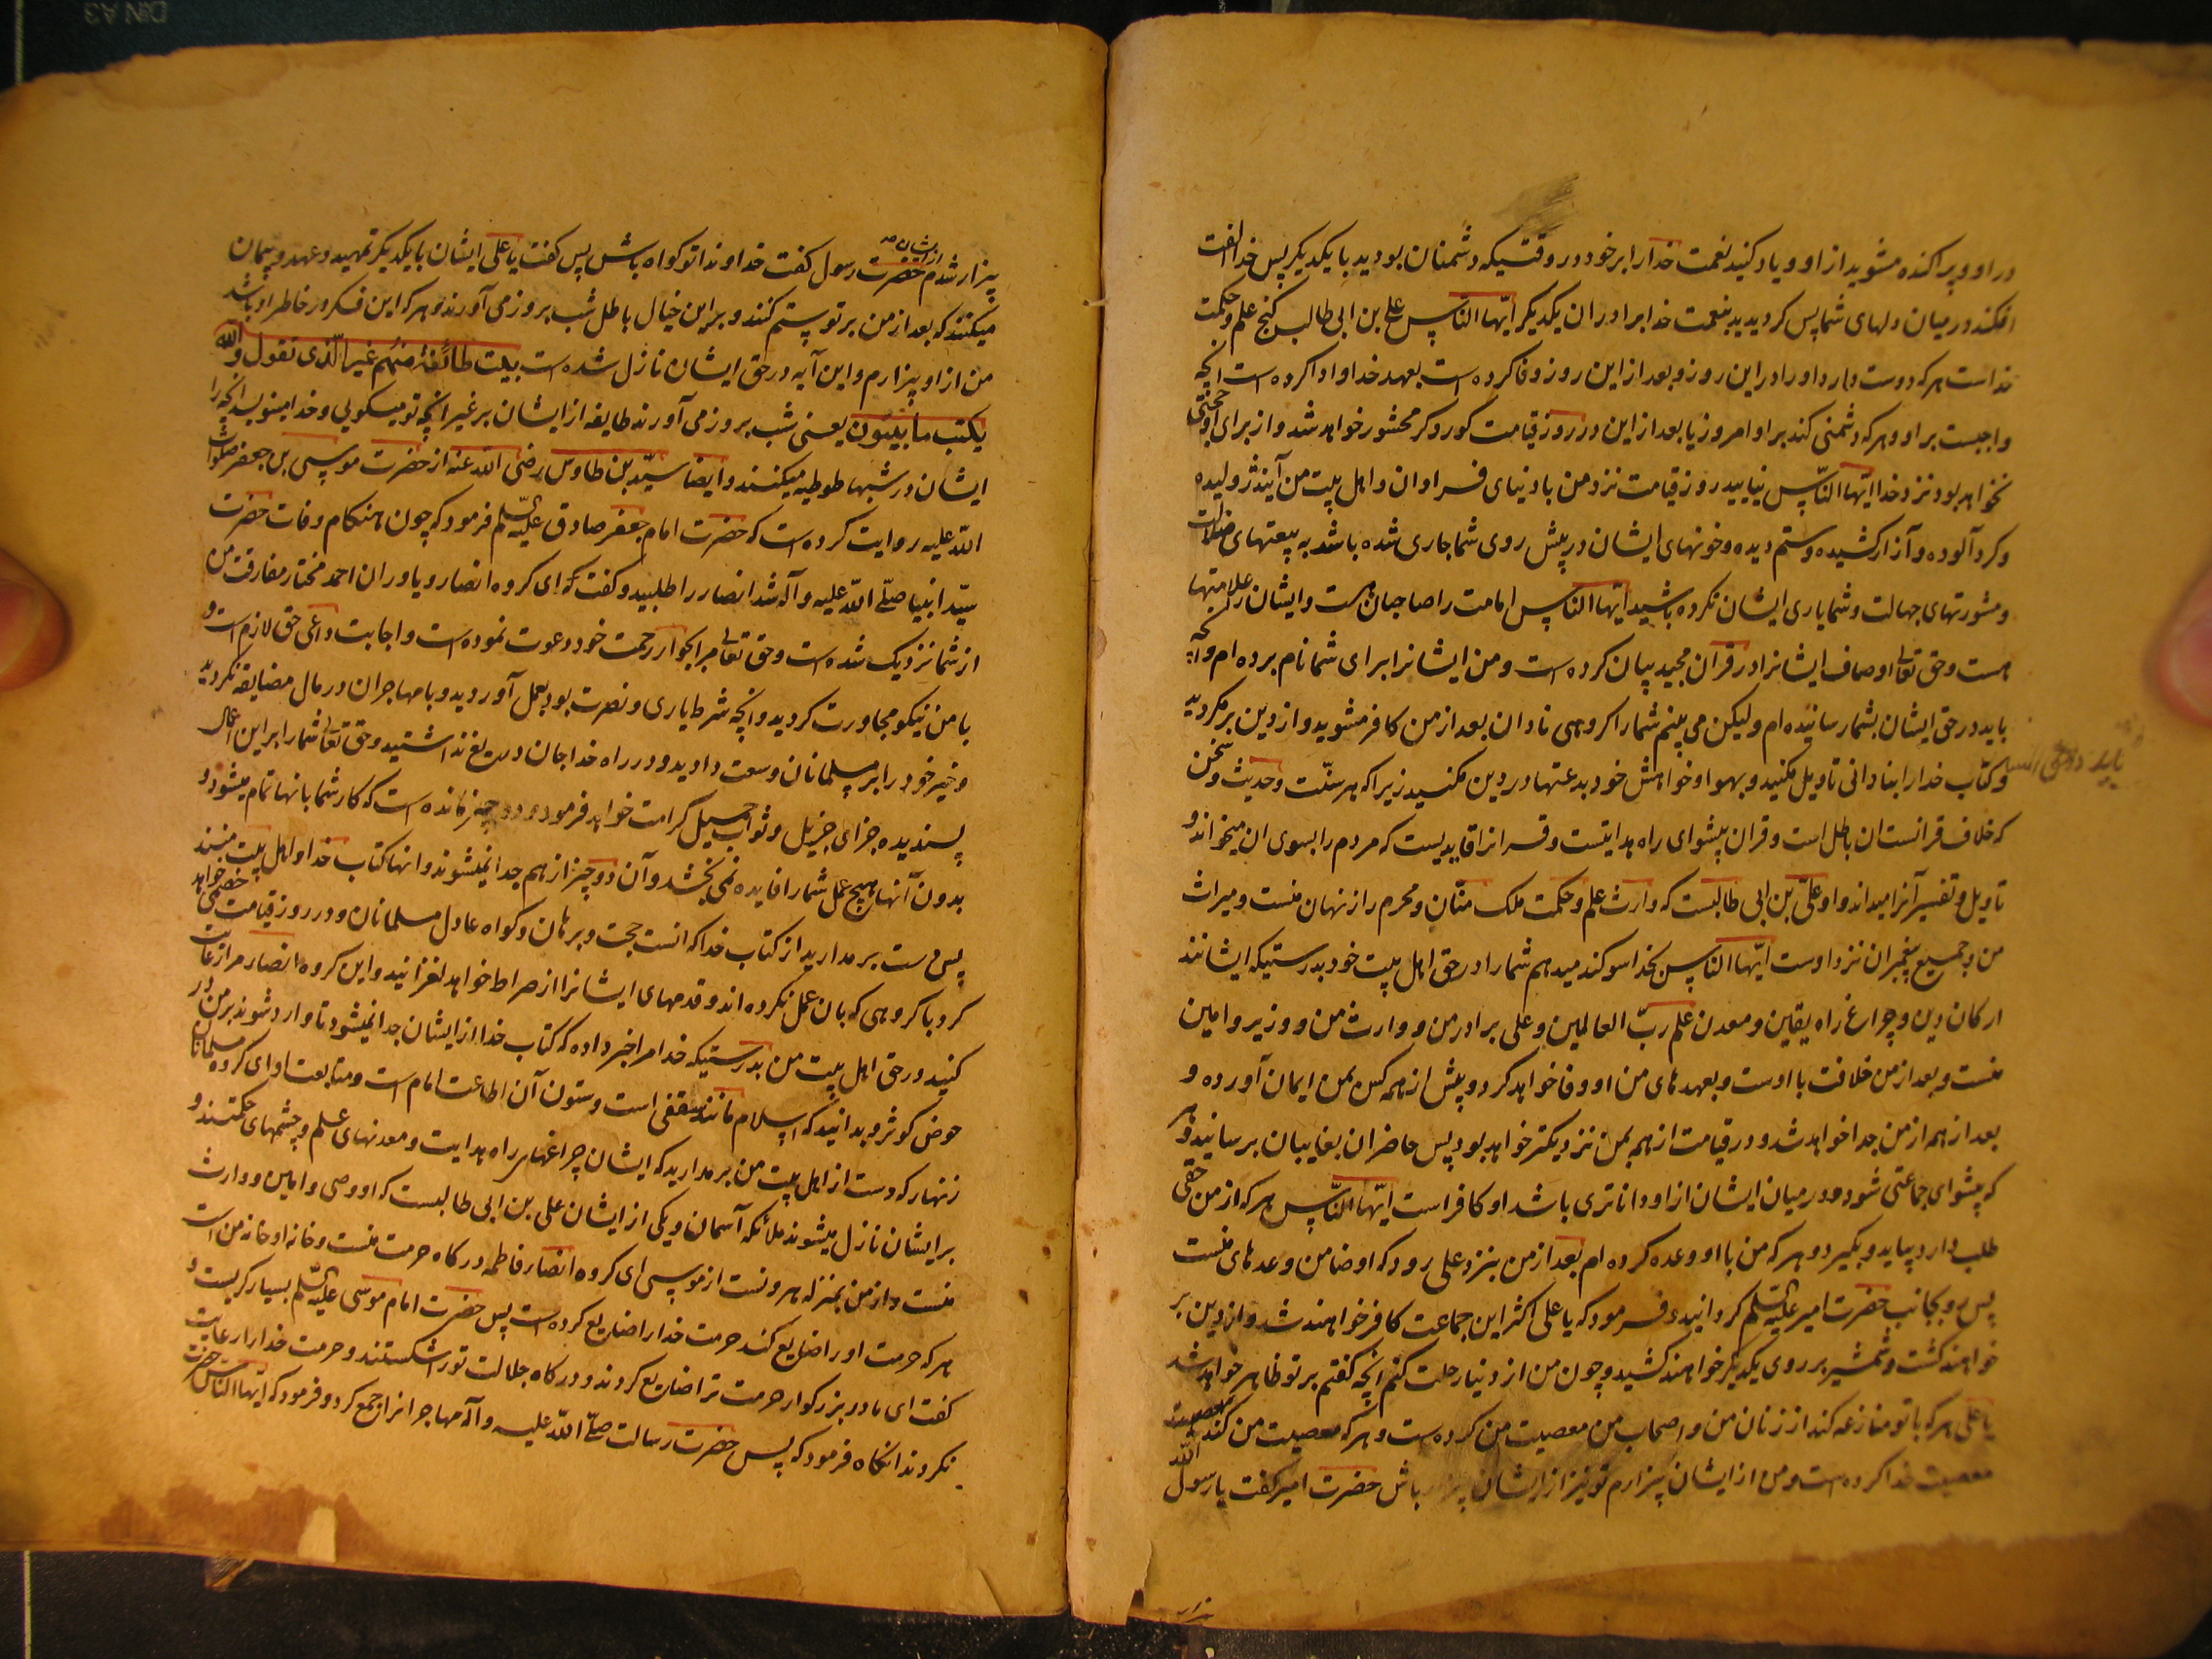 در او و پراکنده مشوید از او و یاد کنید نعمت خدا را بر خود در وقتیکه دشمنان بودید با یکدیگر پس خدا الفت
افکند در میان دلهای شما پس کردیدید بنعمت خدا برادران یکدیگر ایّها النّاس علی بن ابی طالب کنج علم و حکمت
خداست هر که دوست دارد او را در این روز و بعد از این روز وفا کرده است بعهد خدا و ادا کرده است آنچه
واجبست بر او و هر که دشمنی کند بر او امروز یا بعد از این در روز قیامت کور و کر محشور خواهد شد و از برای او حجتی
نخواهد بود نزد خدا ایّها النّاس نیایید روز قیامت نزد من با دنیای فراوان و اهل بیت من آیند ژولیده
و کرد آلوده و آزار کشیده و ستم دیده و خونهای ایشان در پیش روی شما جاری شده باشد به بیعتهای ضلالت
و مشورتهای جهالت و شما یاری ایشان نکرده باشید ایّها الناس امامت را صاحبان هست و ایشان را علامتها
هست و حق تعالی اوصاف ایشانرا در قرآن مجید بیان کرده است و من ایشانرا برای شما نام برده ام و آنچه
باید در حق ایشان بشما رسانیده ام ولیکن می بینم شما را کروهی نادان بعد از من کافر مشوید و از دین برمکردید
و کتاب خدا را بنادانی تاویل مکنید و بهوا و خواهش خود بدعتها در دین مکنید زیرا که هر سنّت و حدیث و سخن
که خلاف قرانست ان باطل است و قران پیشوای راه هدایتست و قرانرا قایدیست که مردم را بسوی ان میخواند و
تاویل و تفسیر آنرا میداند و او علی بن ابی طالبست که وارث علم و حکمت ملک منّان و محرم راز نهان منست و میراث
من و جمیع پیغمبران نزد اوست ایّها النّاس بخدا سوکند میدهم شما را در حق اهل بیت خود بدرستیکه ایشانند
ارکان دین و چراغ راه یقین و معدن علم ربّ العالمین و علی برادر من و وارث من و وزیر و امین
منست و بعد از من خلافت با اوست و بعهدهای من او وفا خواهد کرد و پیش از همه کس بمن ایمان آورده و
بعد از همه از من جدا خواهد شد و در قیامت از همه بمن نزدیکتر خواهد بود پس حاضران بغایبان برسانید و هر
که پیشوای جماعتی شود و در میان ایشان از او داناتری باشد او کافر است ایّها النّاس هر که از من حقی
طلب دارد بیاید و بکیرد و هر که من با او وعده کرده ام بعد از من بنزد علی رود که او ضامن وعدهای منست
پس رو بجانب حضرت امیر علیه السّلم کردانید و فرمود که یا علی اکثر این جماعت کافر خواهند شد و از دین بر
خواهند کشت و شمشیر بر روی یکدیگر خواهند کشید و چون من از دنیا رحلت کنم آنچه کفتم بر تو ظاهر خواهد شد
یا علی هر که با تو منازعه کند از زنان من و اصحاب من معصیت من کرده است و هر که معصیت من کند معصیت
معصیت خدا کرده است و من از ایشان بیزارم تو نیز از ایشان بیزار باش حضرت امیر کفت یا رسول الله
از ایشان صح
بیزار شدم حضرت رسول کفت خداوندا تو کواه باش پس کفت یا علی ایشان با یکدیگر تمهید و عهد و پیمان
میکنند که بعد از من بر تو ستم کنند و بر این خیال باطل شب بروز می آورند و هر که این فکر در خاطر او باشد
من از او بیزارم و این آیه در حق ایشان نازل شده است بیّت طائفة منهم غیر الّذی تقول و اللّه
یکتب ما یبیّتون یعنی شب بروز می آورند طایفه از ایشان بر غیر آنچه تو میکویی و خدا مینویسد آنچه را
ایشان در شبها طوطیه میکنند و ایضا سیّد بن طاوس رضی اللّه عنه از حضرت موسی بن جعفر صلوات
اللّه علیه روایت کرده است که حضرت امام جعفر صادق علیه السّلم فرمود که چون هنکام وفات حضرت
سیّد انبیا صلّی اللّه علیه و آله شد انصار را طلبید و کفت که ای کروه انصار و یاوران احمد مختار مفارقت من
از شما نزدیک شده است و حق تعالی مرا بجوار رحمت خود دعوت نموده است و اجابت داعی حق لازم است و
با من نیکو مجاورت کردید و آنچه شرط یاری و نصرت بود بعمل آوردید و با مهاجران در مال مضایقه نکردید
و خیر خود را بر مسلمانان وسعت دادید و در راه خدا جان دریغ نداشتید و حق تعالی شما را بر این اعمال
پسندیده جزای جزیل و ثواب جمیل کرامت خواهد فرمود و دو چیز مانده است که کار شما بانها تمام میشود و
بدون آنها هیچ عمل شما را فایده نمی بخشد و آن دو چیز از هم جدا نمیشوند و انها کتاب خدا و اهل بیت منند
پس دست برمدارید از کتاب خدا که انست حجت و برهان و کواه عادل مسلمانان و در روز قیامت خصمی خواهد
کرد با کروهی که بان عمل نکرده اند و قدمهای ایشانرا از صراط خواهد لغزانید و این کروه انصار مرا رعایت
کنید در حق اهل بیت من بدرستیکه خدا مرا خبر داده که کتاب خدا از ایشان جدا نمیشود تا وارد شوند بر من در
حوض کوثر و بدانید که اسلام مانند سقفی است و ستون آن اطاعت امام است و متابعت او ای کروه مسلمانان
زنهار که دست از اهل بیت من برمدارید که ایشان چراغهای راه هدایت و معدنهای علم و چشمهای حکمتند و
بر ایشان نازل میشوند ملائکه آسمان و یکی از ایشان علی بن ابی طالبست که او وصی و امین و وارث
منست و از من بمنزله هرونست از موسی ای کروه انصار فاطمه درکاه حرمت منست و خانه او خانه من است
هر که حرمت او را ضایع کند حرمت خدا را ضایع کرده است پس حضرت امام موسی علیه السّلم بسیار کریست و
کفت ای مادر بزرکوار حرمت ترا ضایع کردند و درکاه جلالت تو را شکستند و حرمت خدا را رعایت
نکردند انکاه فرمود که پس حضرت رسالت صلّی اللّه علیه و آله مهاجرانرا جمع کرد و فرمود که ایّها النّاس حضرت